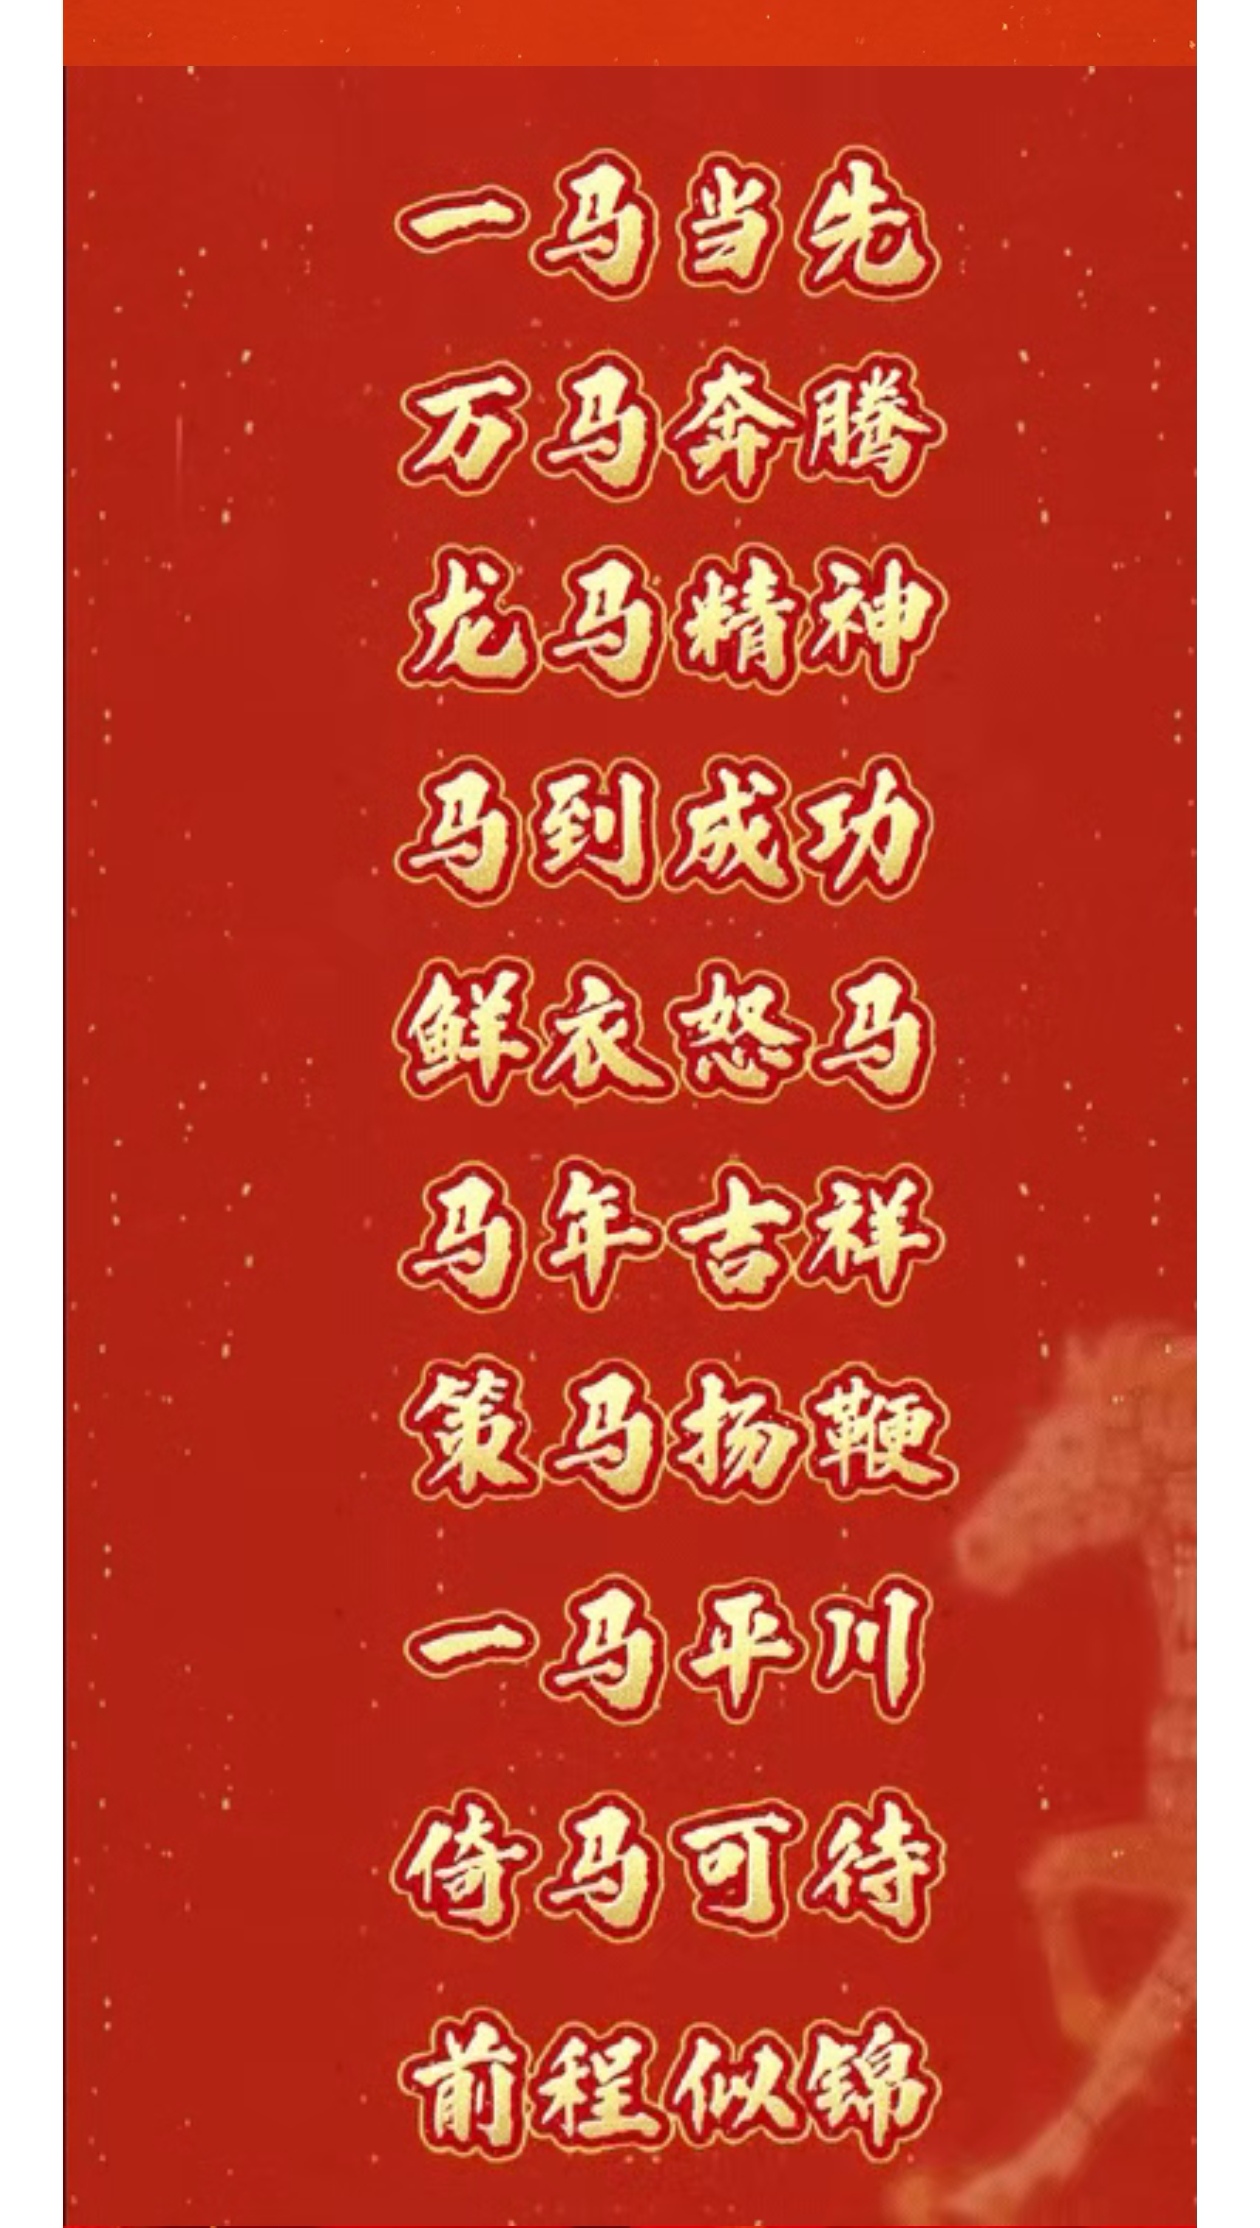 一马当先
万马奔腾
龙马精神
马到成功
鲜衣怒马
马年吉祥
策马扬鞭
一马平川
倚马可待
前程似锦